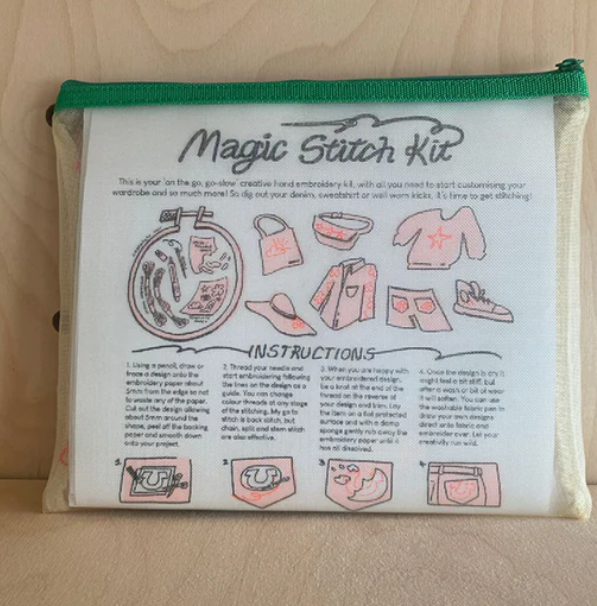 Magic Stitch Kit
This is your 'on the go, go-slow' creative hand embroidery kit, with all you need to start customising your
wardrobe and so much more! So dig out your denim, sweatshirt or well worn kicks, it's time to get stitching!
INSTRUCTIONS
1. Using a pencil, draw or
trace a design onto the
embroidery paper about
5mm from the edge so not
to waste any of the paper.
Cut out the design allowing
about 5mm around the
shape, peel off the backing
paper and smooth down
onto your project.
2. Thread your needle and
start embroidering following
the lines on the design as a
guide. You can change
colour threads at any stage
of the stitching. My go to
stitch is back stitch, but
chain, split and stem stitch
are also effective.
3. When you are happy with
your embroidered design,
tie a knot at the end of the
thread on the reverse of
your design and trim. Lay
the item on a flat protected
surface and with a damp
sponge gently rub away the
embroidery paper until it
has all dissolved.
4. Once the design is dry it
might feel a bit stiff, but
after a wash or bit of wear
it will soften. You can use
the washable fabric pen to
draw your own designs
direct onto fabric and
embroider over. Let your
creativity run wild.
1.
2.
3.
4.